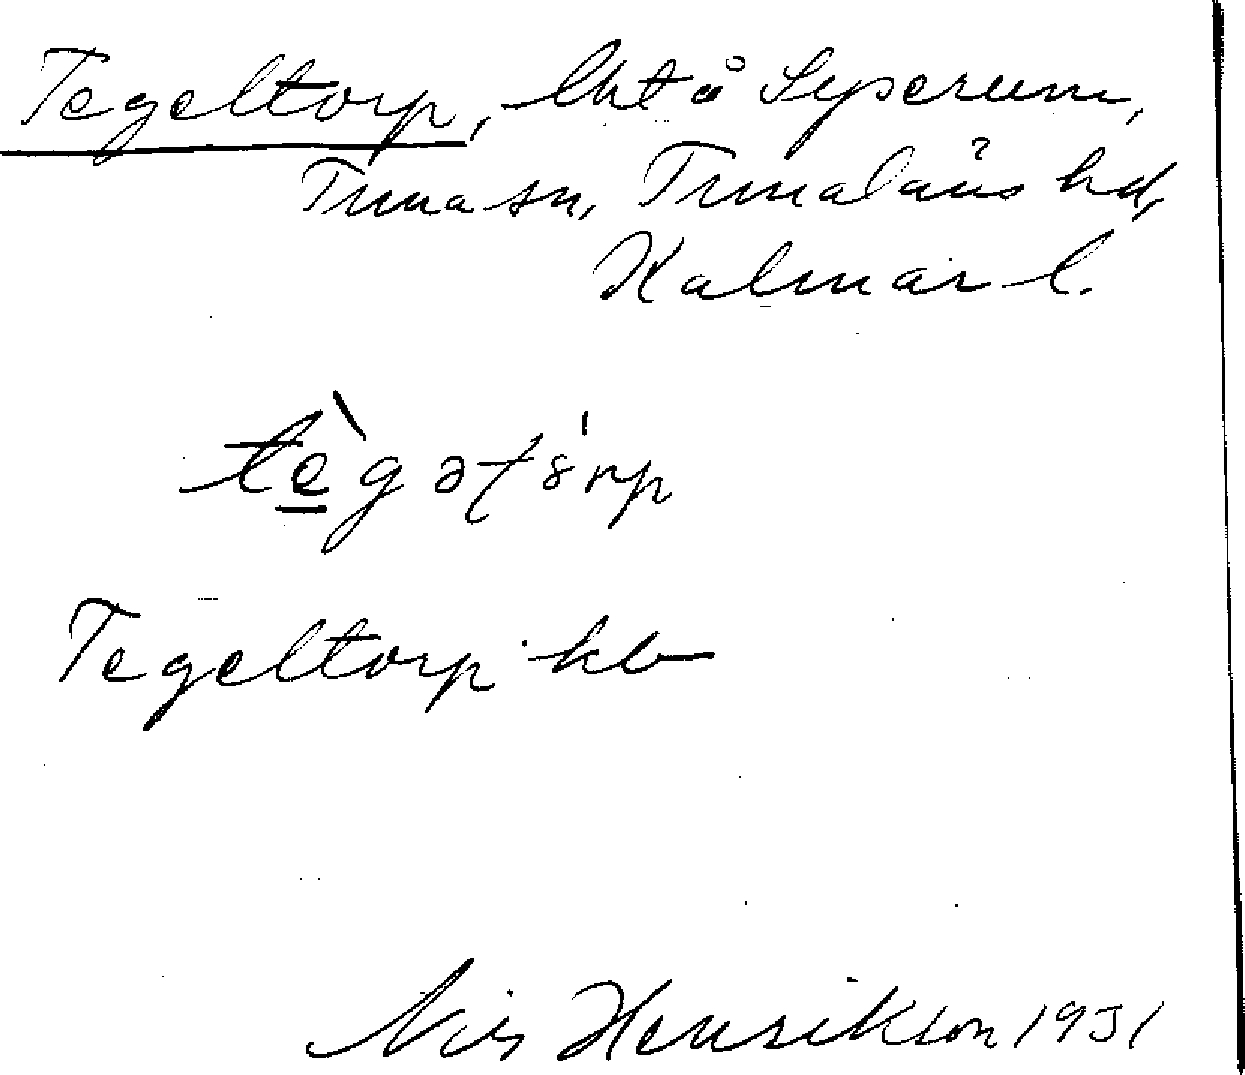 Tegeltorp, lht å Syserum,
Tuna sn, Tunaläns hd,
Kalmar l.
tè̲gətórp
Tegeltorp kb
Nils Henrikson 1931